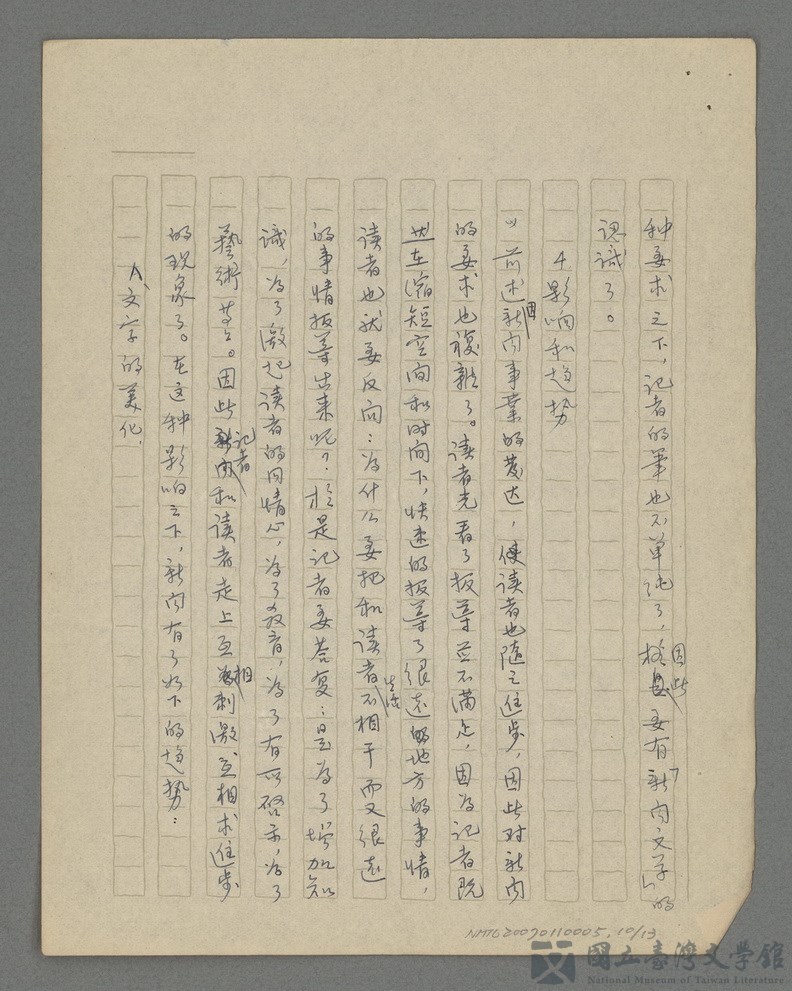 种要求之下，记者的筆也不单纯了，因此要有「新闻文学」的
认識了。
4 影响和趋势
〃前述因新闻事業的茇达，使读者也随之進步，因此对新闻
的要求也複雜了。读者光看了报导並不满足，因为记者既
然在缩短空间和时间下，快速的报导了很远的地方的事情，
读者也就要反问：为什么要把和读者生活不相干而又很远
的事情报導出来呢？於是记者要荅复：是为了增加知
識，为了激起读者的同情心，为了教育，为了有所啓示，为了
藝術等等。因此记者和读者走上互相刺激、互相求進步
的现象了。在这种影响之下，新闻有了如下的趋势：
A、文字的美化，
NMTL20090110005，10/13
國立臺灣文學館
National Museum of Taiwan Literature